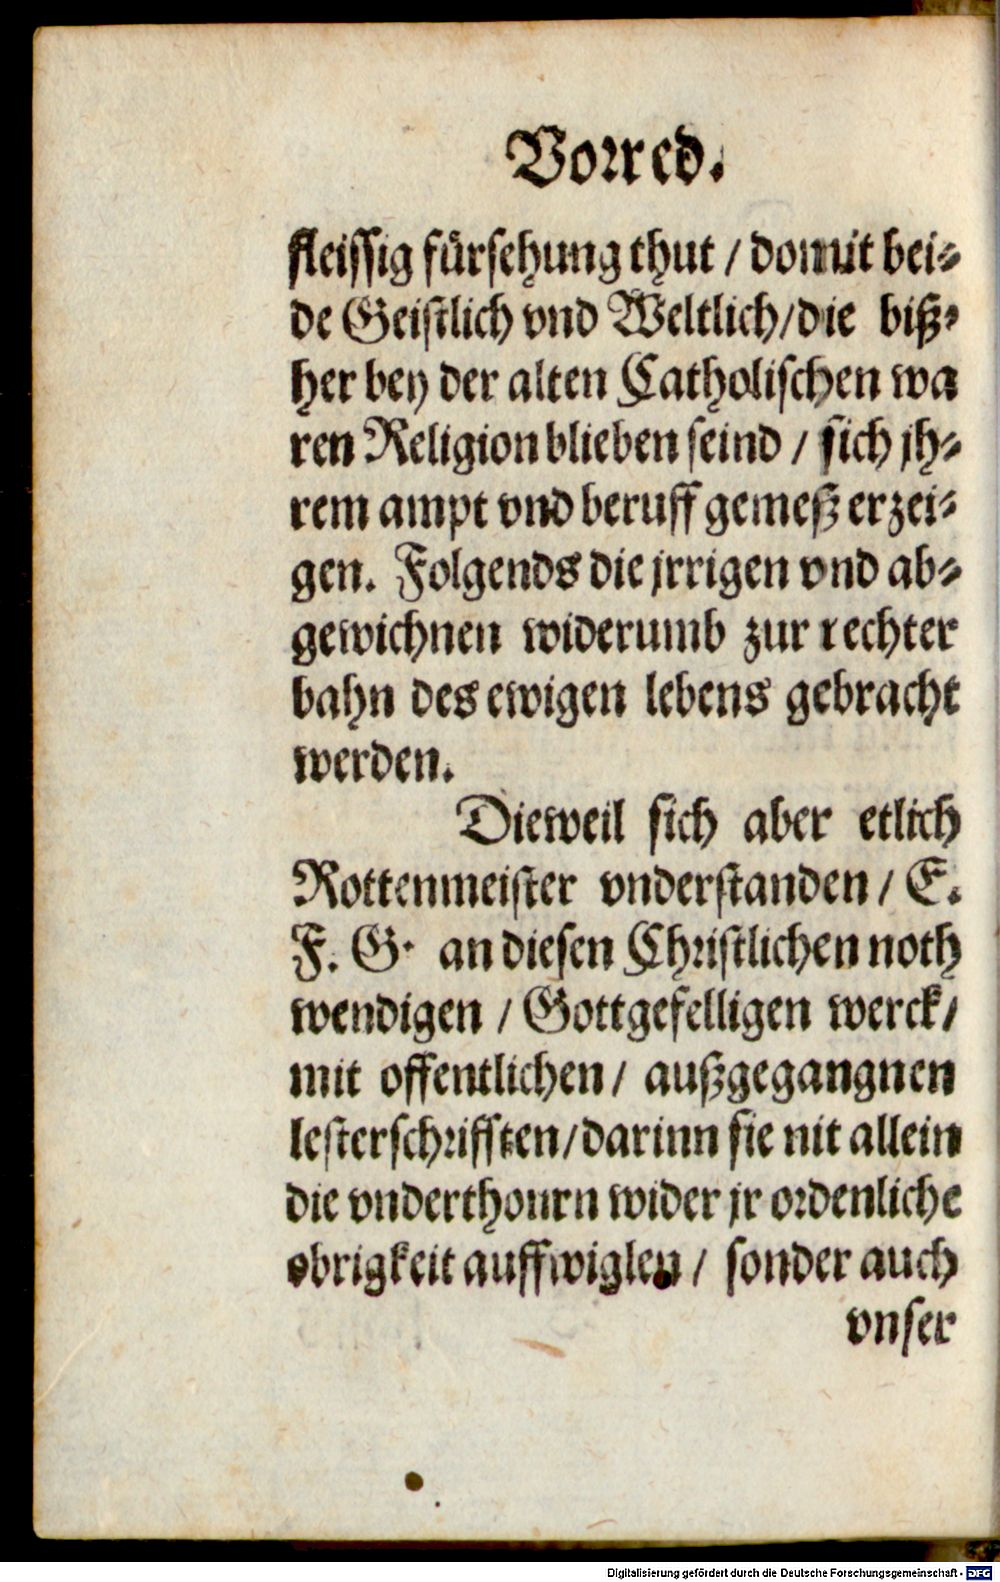 Vorred.
fleissig fürsehung thut / domit bei-
de Geistlich vnd Weltlich/die biß-
her bey der alten Catholischen wa
ren Religion blieben seind / sich jh-
rem ampt vnd beruff gemeß erzei-
gen. Folgends die jrrigen vnd ab-
gewichnen widerumb zur rechter
bahn des ewigen lebens gebracht
werden.
Dieweil sich aber etlich
Rottenmeister vnderstanden / E.
F. G. an diesen Christlichen noth
wendigen / Gottgefelligen werck/
mit offentlichen / außgegangnen
lesterschrifften/darinn sie nit allein
die vnderthonrn wider jr ordenliche
obrigkeit auffwiglen / sonder auch
vnser
Digitalisierung gefördert durch die Deutsche Forschungsgemeinschaft - DFG